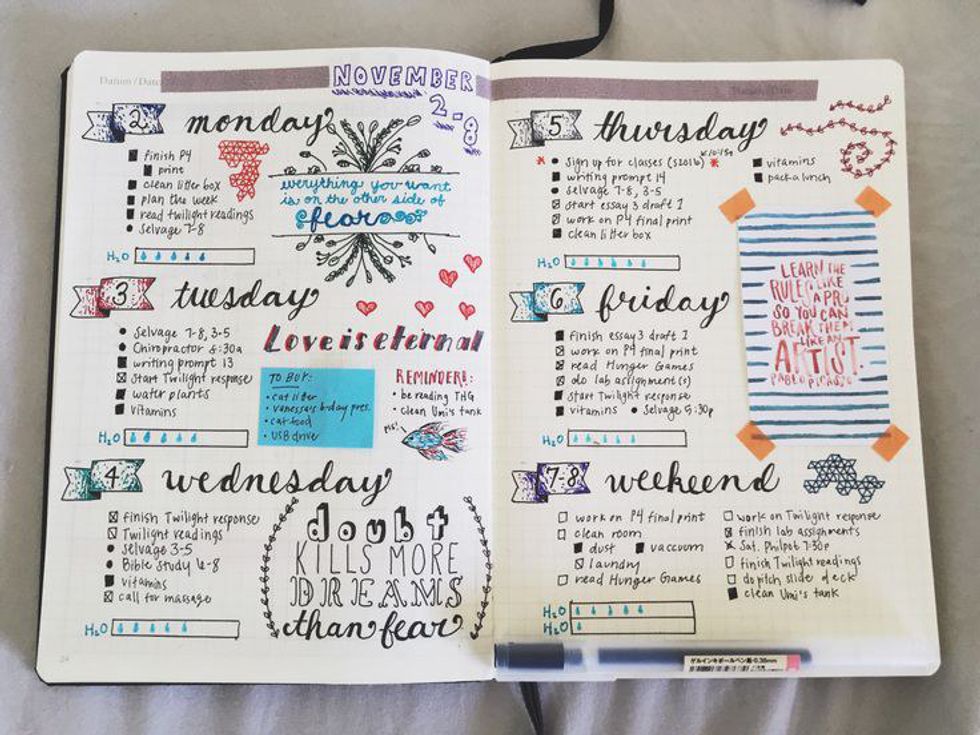 Datum / Date
NOVEMBER
2-8
2 monday
finish P4
print
clean litter box
plan the week
read twilight readings
selvage 7-8
H2O
everything you want
is on the other side of
fear
3 tuesday
Selvage 7-8, 3-5
Chiropractor 8:30a
writing prompt 13
Start Twilight response
water plants
vitamins
H2O
Love is eternal
TO BUY:
• cat litter
• vanessa's b-day pres.
• cat food
• USB drive
REMINDER!:
• be reading THG
• clean Umi's tank
4 wednesday
finish Twilight response
Twilight readings
Selvage 3-5
Bible Study 6-8
vitamins
call for massage
H2O
doubt
KILLS MORE
DREAMS
than fear
5 thursday
Sign up for classes (S2016)
writing prompt 14
selvage 7-8, 3-5
start essay 3 draft 1
work on P4 final print
clean litter box
vitamins
pack a lunch
H2O
6 friday
finish essay 3 draft 1
work on P4 final print
read Hunger Games
do lab assignment(s)
start Twilight response
vitamins • Selvage 5:30p
H2O
LEARN THE
RULES LIKE
A PRO
SO YOU CAN
BREAK THEM
LIKE AN
ARTIST.
PABLO PICASSO
7-8 weekend
work on P4 final print
clean room
dust vaccuum
laundry
read Hunger Games
work on Twilight response
finish lab assignments
Sat. Philpot 7:30p
finish Twilight readings
do pitch slide deck
clean Umi's tank
H2O
H2O
ゲルインキボールペン 0.38mm